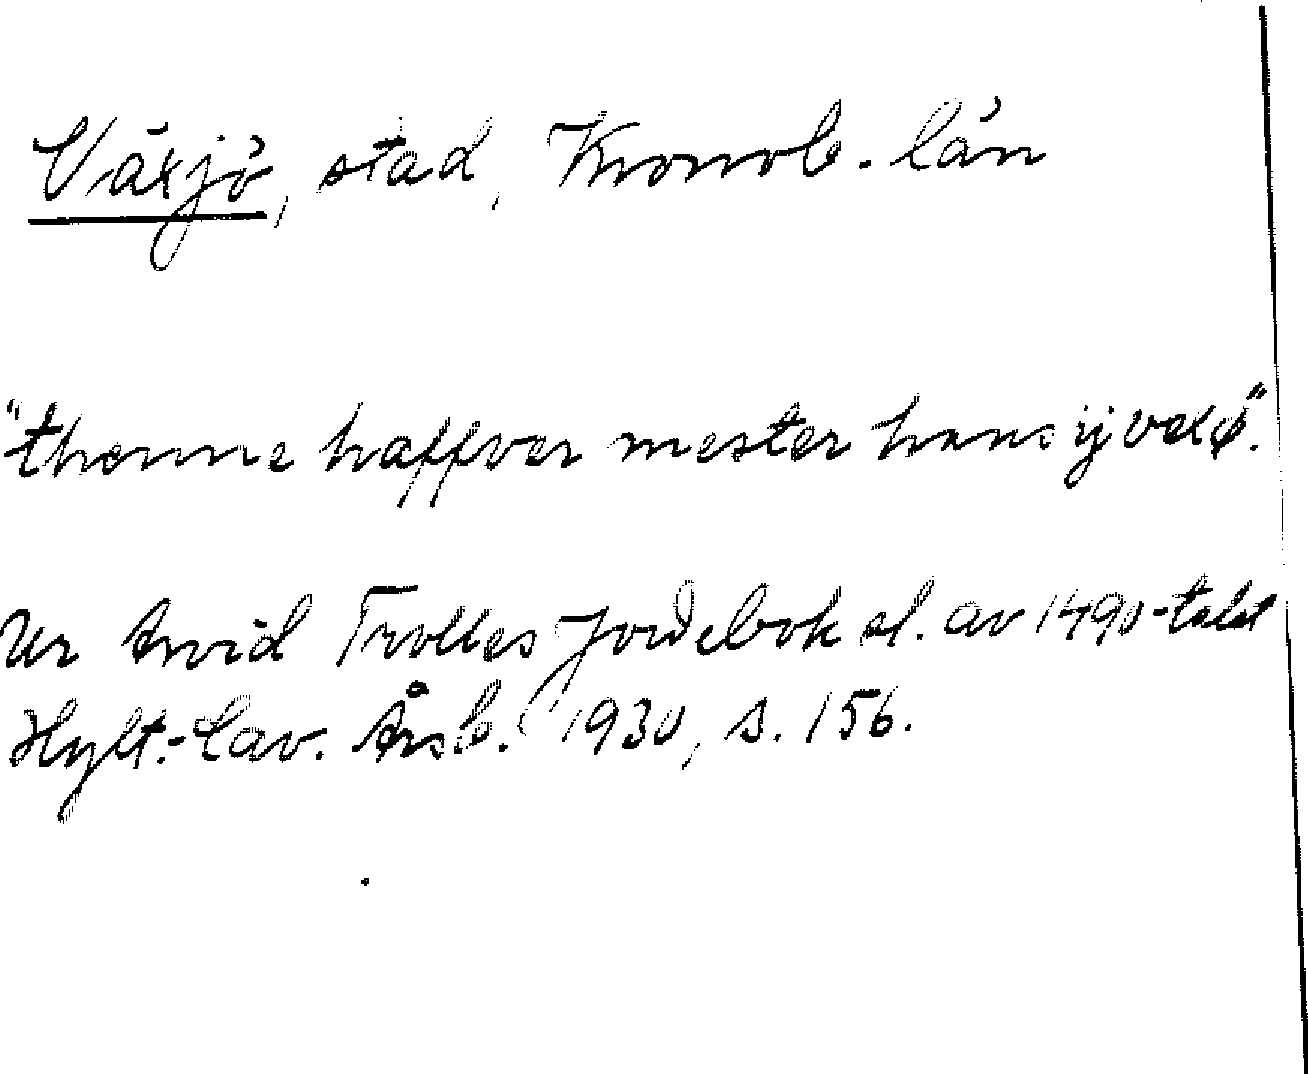 Växjö, stad, Kronob. län
"thenne haffver mester hans ij vexø".
Ur Arvid Trolles Jordebok sl. av 1490-talet
Hylt.-Cav. Årsb. 1930, s. 156.